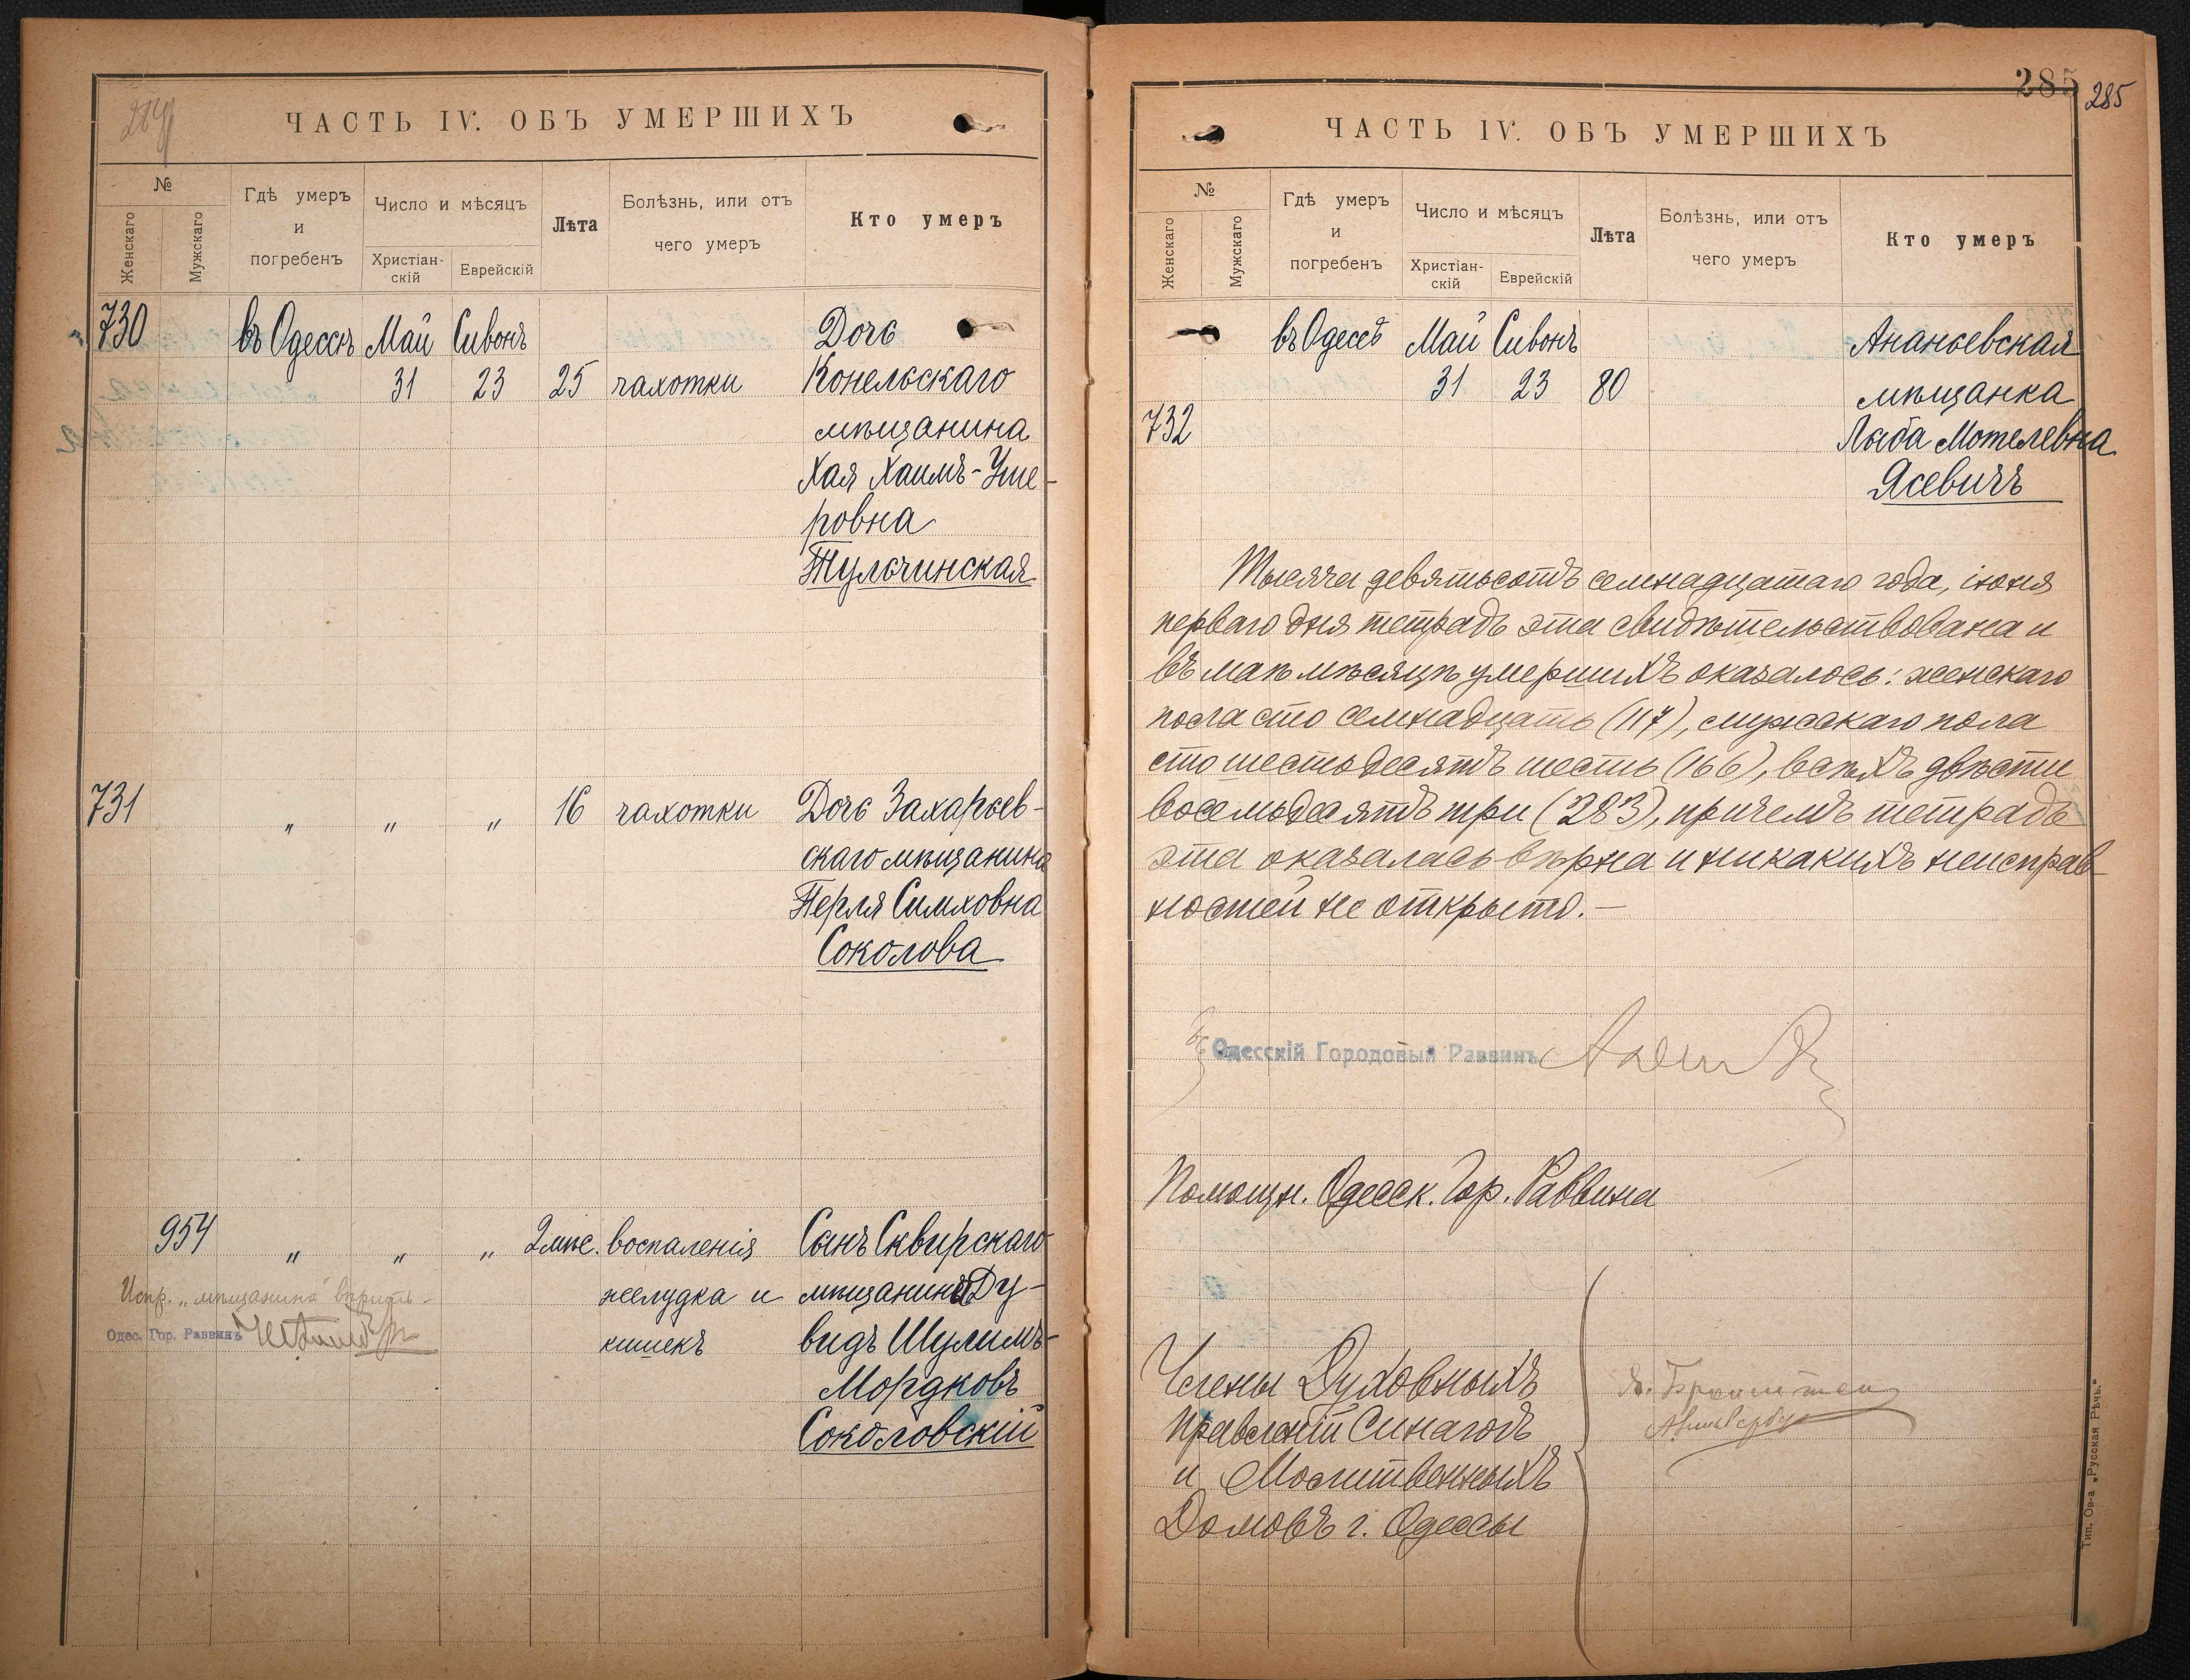 284
ЧАСТЬ IV. ОБЪ УМЕРШИХЪ
№
Женскаго
Мужскаго
Гдѣ умеръ
и
погребенъ
Число и мѣсяцъ
Христіан-
скій
Еврейскій
Лѣта
Болѣзнь, или отъ
чего умеръ
Кто умеръ
730 въ Одессѣ Май Сивонъ Дочь
31 23 25 чахотки Конельскаго
мѣщанина
Хая Хаимъ-Уше-
ровна
Тульчинская
731 " " " 16 чахотки Дочь Захарьев-
скаго мѣщанина
Перля Симховна
Соколова
954 " " " 2 мѣс. воспаленія Сынъ Сквирскаго
желудка и мѣщанина Ду-
кишекъ видъ Шулимъ-
Мордковъ
Соколовскій
Испр. „мѣщанина" вѣрить
Одес. Гор. Раввинъ
285
285
ЧАСТЬ IV. ОБЪ УМЕРШИХЪ
№
Женскаго
Мужскаго
Гдѣ умеръ
и
погребенъ
Число и мѣсяцъ
Христіан-
скій
Еврейскій
Лѣта
Болѣзнь, или отъ
чего умеръ
Кто умеръ
въ Одессѣ Май Сивонъ Ананьевская
31 23 80 мѣщанка
732 Лыба Мотелевна
Ясевичъ
Тысяча девятьсотъ семнадцатаго года, іюня
перваго дня тетрадь эта свидѣтельствована и
въ маѣ мѣсяцѣ умершихъ оказалось: женскаго
пола сто семнадцать (117), мужскаго пола
сто шестьдесятъ шесть (166), всѣхъ двѣсти
восемьдесятъ три (283), причемъ тетрадь
эта оказалась вѣрна и никакихъ неисправ-
ностей не открыто.—
Одесскій Городовый Раввинъ
Помощн. Одесск. Гор. Раввина
Члены Духовныхъ
Правленій Синагогъ
и Молитвенныхъ
Домовъ г. Одессы
Тип. Ов-а „Русская Рѣчь."